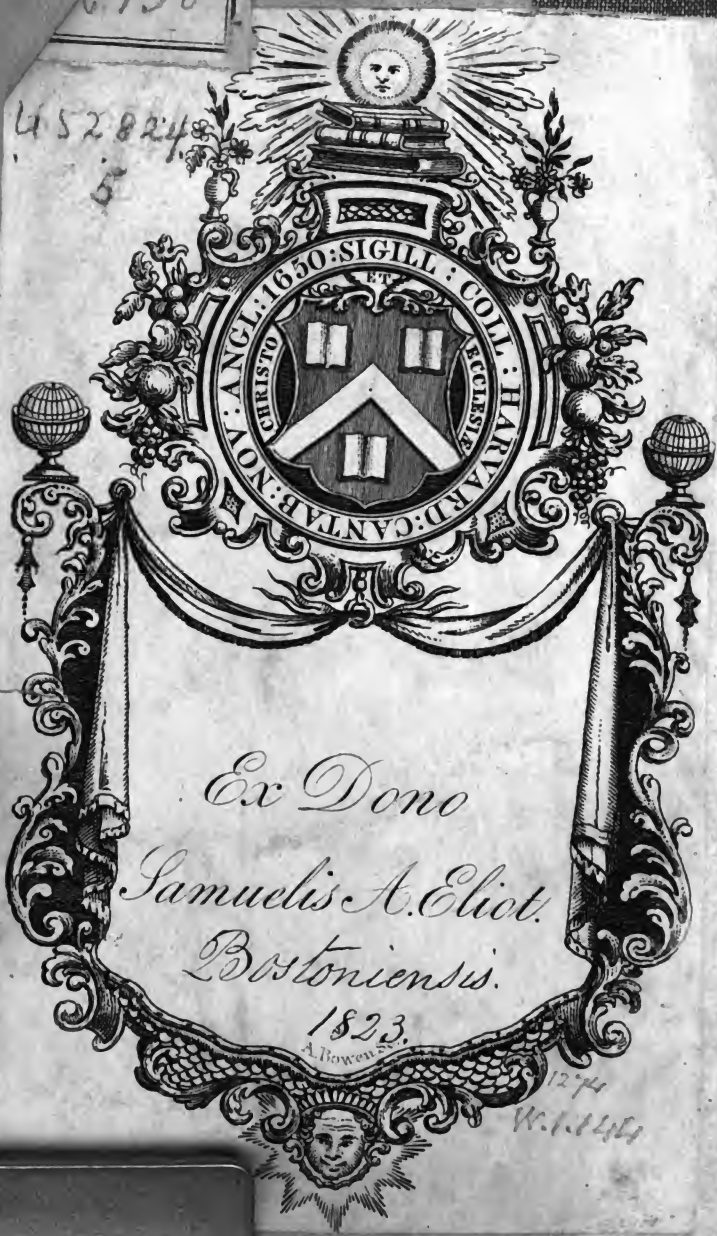 US2824
5
:SIGILL : COLL : HARVARD: CANTAB: NOV: ANGL: 1650
CHRISTO
ET
ECCLESIÆ
Ex Dono
Samuelis A. Eliot.
Bostoniensis.
1823.
A.Bowen sc.
1274